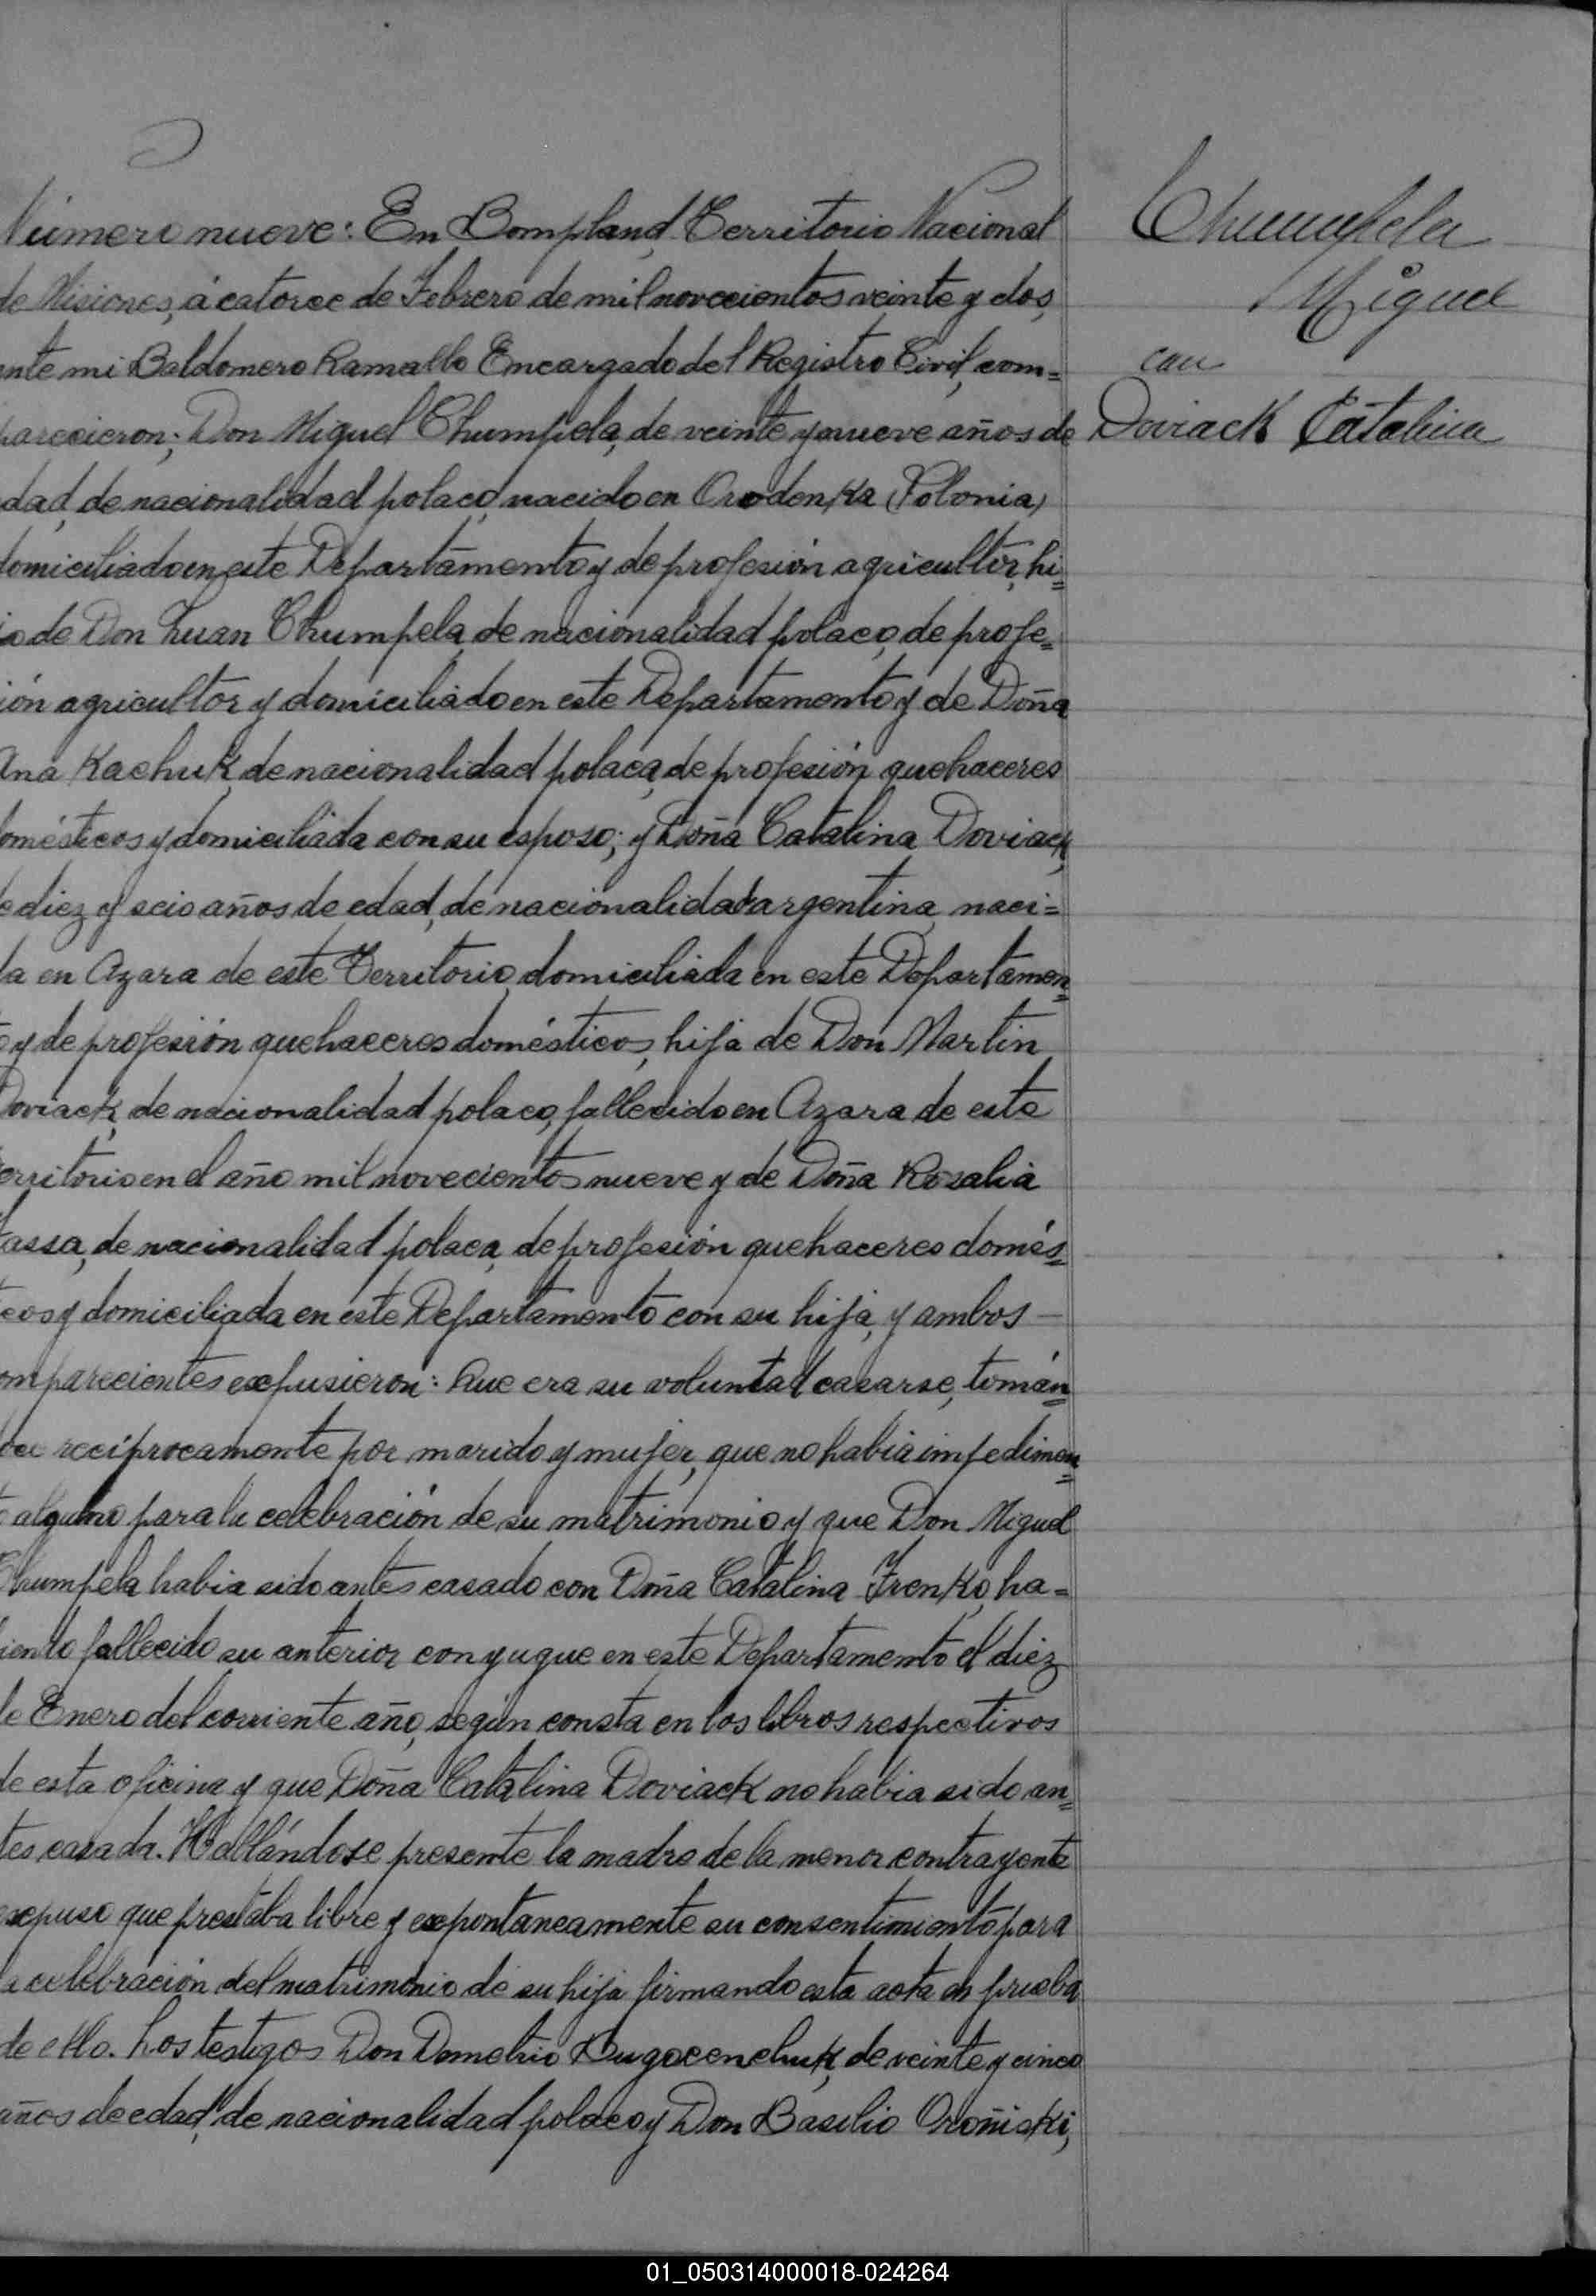 Número nueve: En Bompland, Territorio Nacional
de Misiones, á catorce de Febrero de mil novecientos veinte y dos,
ante mi Baldomero Ramallo Encargado del Registro Civil, com=
parecieron; Don Miguel Chumpela, de veinte y nueve años de
dad, de nacionalidad polaco, nacido en Orodenka (Polonia)
domiciliado en este Departamento y de profesión agricultor, hi=
jo de Don Juan Chumpela, de nacionalidad polaco, de profe=
ión agricultor y domiciliado en este Departamento y de Doña
Ana Kachuk, de nacionalidad polaca, de profesión quehaceres
domésticos y domiciliada con su esposo; y Doña Catalina Doviack,
de diez y seis años de edad, de nacionalidad argentina, naci=
da en Azara de este Territorio, domiciliada en este Departamen=
o y de profesión quehaceres domésticos, hija de Don Martin
Doviack, de nacionalidad polaco, fallecido en Azara de este
erritorio en el año mil novecientos nueve y de Doña Rosalia
assa, de nacionalidad polaca, de profesión quehaceres domés=
icos y domiciliada en este Departamento con su hija, y ambos —
omparecientes expusieron: Que era su voluntad casarse, tomán=
dose recíprocamente por marido y mujer, que no habia impedimen=
o alguno para la celebración de su matrimonio y que Don Miguel
Chumpela habia sido antes casado con Doña Catalina Frenko, ha=
iendo fallecido su anterior conyugue en este Departamento el diez
de Enero del corriente año, según consta en los libros respectivos
de esta oficina y que Doña Catalina Doviack no habia sido an=
tes casada. Hallándose presente la madre de la menor contrayente
expuso que prestaba libre y expontaneamente su consentimiento para
la celebración del matrimonio de su hija firmando esta acta en prueba
de ello. Los testigos Don Demetrio Dugocenchuk, de veinte y cinco
años de edad, de nacionalidad polaco y Don Basilio Oroñiski,
Chumpela
Miguel
con
Doviack Catalina
01_050314000018-024264